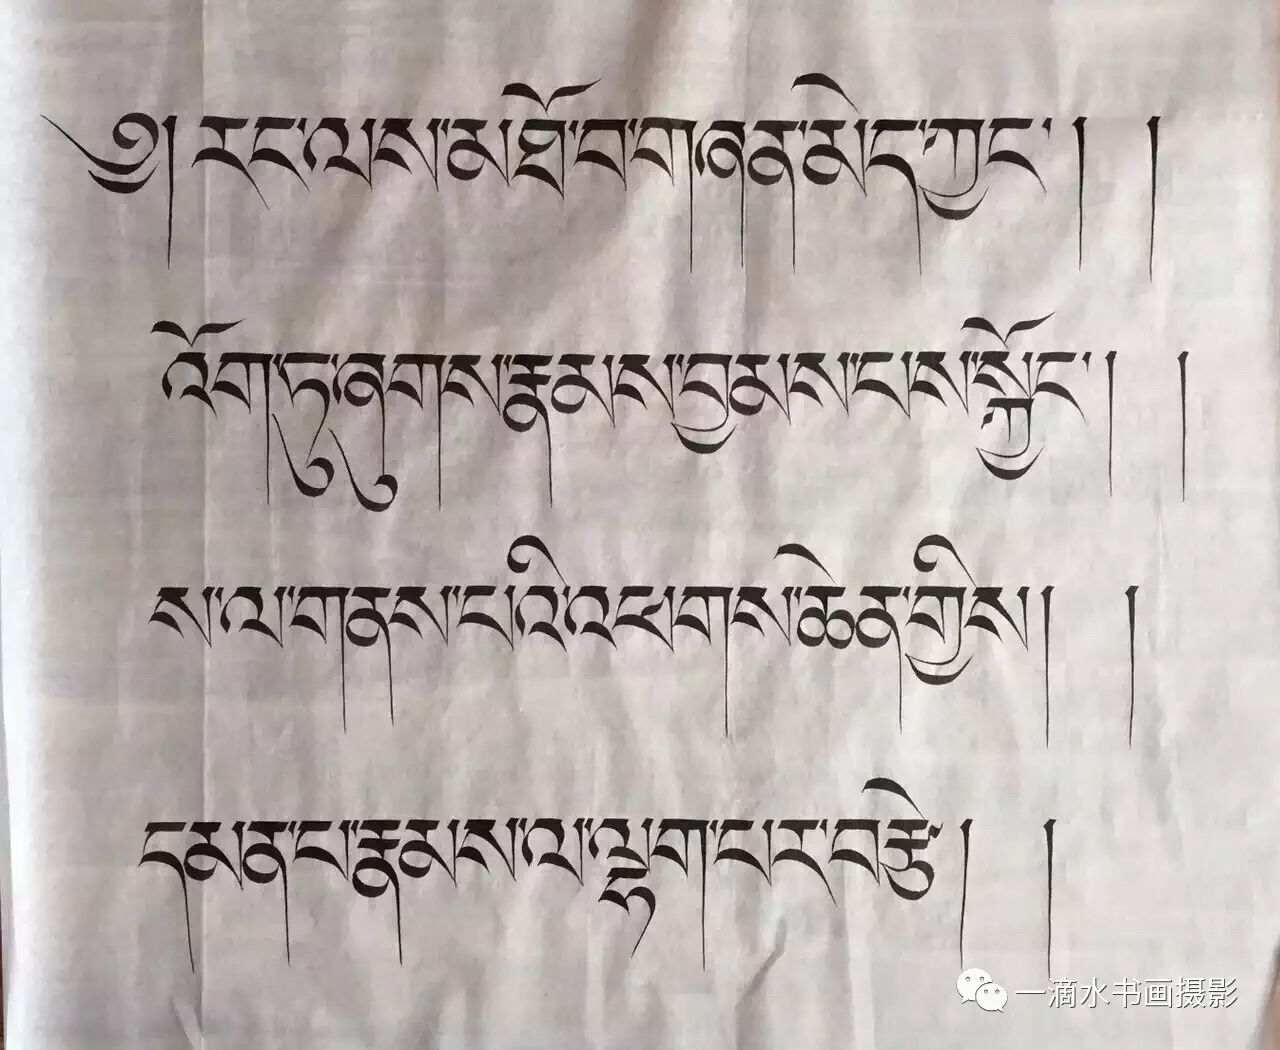 ༄། རང་ལས་མཐོ་བ་གཞན་མེད་ཀྱང་། །
འོག་ཏུ་ཞུགས་རྣམས་བྱམས་པས་སྐྱོང་། །
ས་ལ་གནས་པའི་འཕགས་ཆེན་གྱིས། །
དམན་པ་རྣམས་ལ་ལྷག་པར་བརྩེ། །
一滴水书画摄影